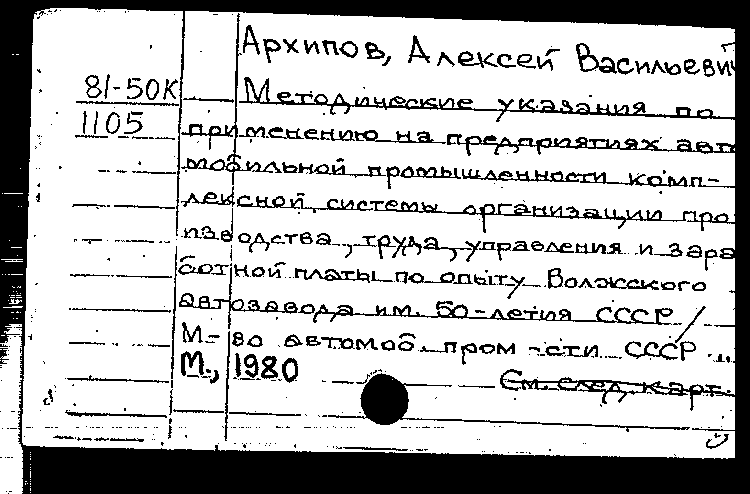 Архипов, Алексей Васильевич
81-50К Методические указания по
1105 применению на предприятиях авто
мобильной промышленности комп-
лексной системы организации про
изводства, труда, управления и зара
ботной платы по опыту Волжского
автозавода им. 50-летия СССР /
М-во автомоб. пром-сти СССР ...
М., 1980
См. след. карт.